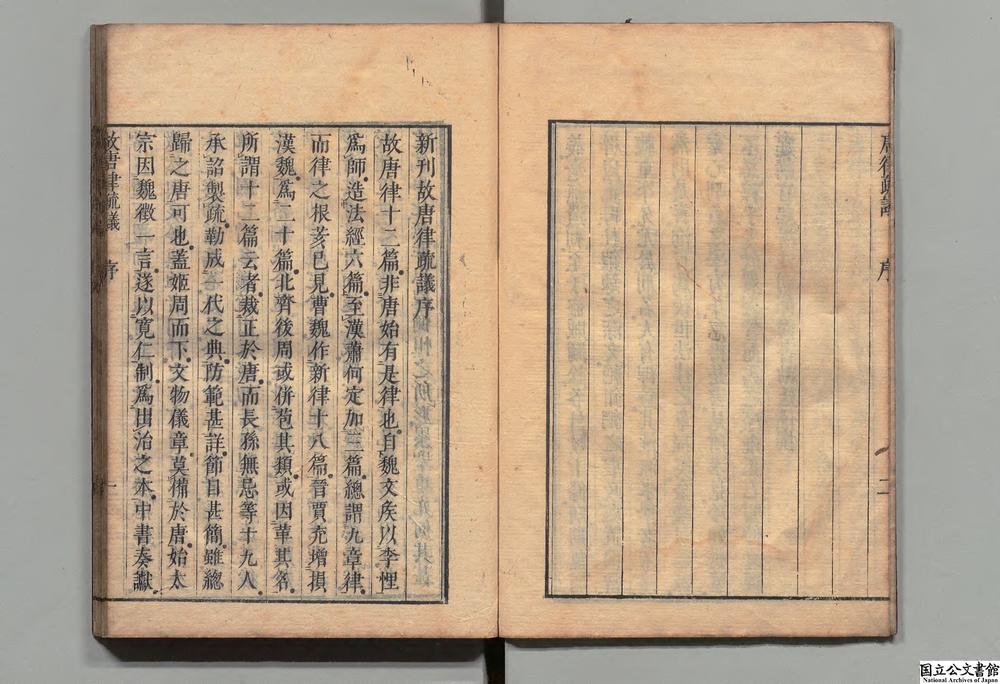 唐律疏議
序
二
新刊故唐律疏議序
故唐律十二篇非唐始有是律也自魏文侯以李悝
爲師造法經六篇至漢蕭何定加三篇總謂九章律
而律之根荄已見曹魏作新律十八篇晉賈充增損
漢魏爲二十篇北齊後周或併苞其類或因革其名
所謂十二篇云者裁正於唐而長孫無忌等十九人
承詔製疏勒成一代之典防範甚詳節目甚簡雖總
歸之唐可也蓋姬周而下文物儀章莫備於唐始太
宗因魏徵一言遂以寬仁制爲出治之本中書奏讞
故唐律疏議
序
一
国立公文書館
National Archives of Japan